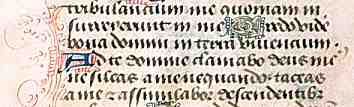 tribulantium me quoniam in
surrexerunt in me Credo vide
bona domini in terra viuentium.
Ad te domine clamabo deus me
sileas a me nequando taceas
a me & assimilabor descendentibz